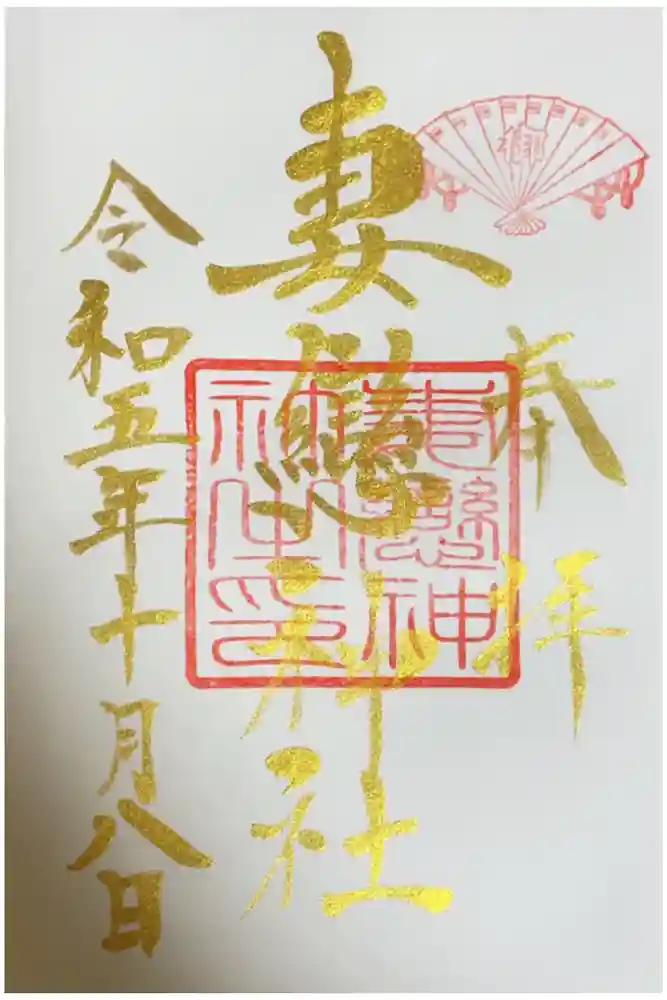 奉拝
妻戀神社
令和五年十月八日
妻戀神
社之印